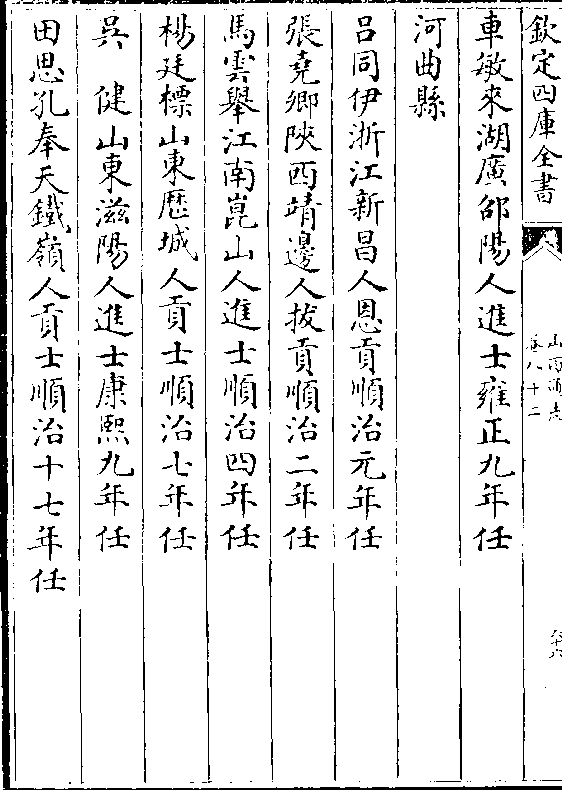 欽定四庫全書
山西通志
卷八十二
車敏來湖廣邵陽人進士雍正九年任
河曲縣
呂同伊浙江新昌人恩貢順治元年任
張堯鄉陝西靖邊人拔貢順治二年任
馬雲舉江南崑山人進士順治四年任
楊廷標山東歷城人貢士順治七年任
吳　健山東滋陽人進士康熙九年任
田思孔奉天鐵嶺人貢士順治十七年任